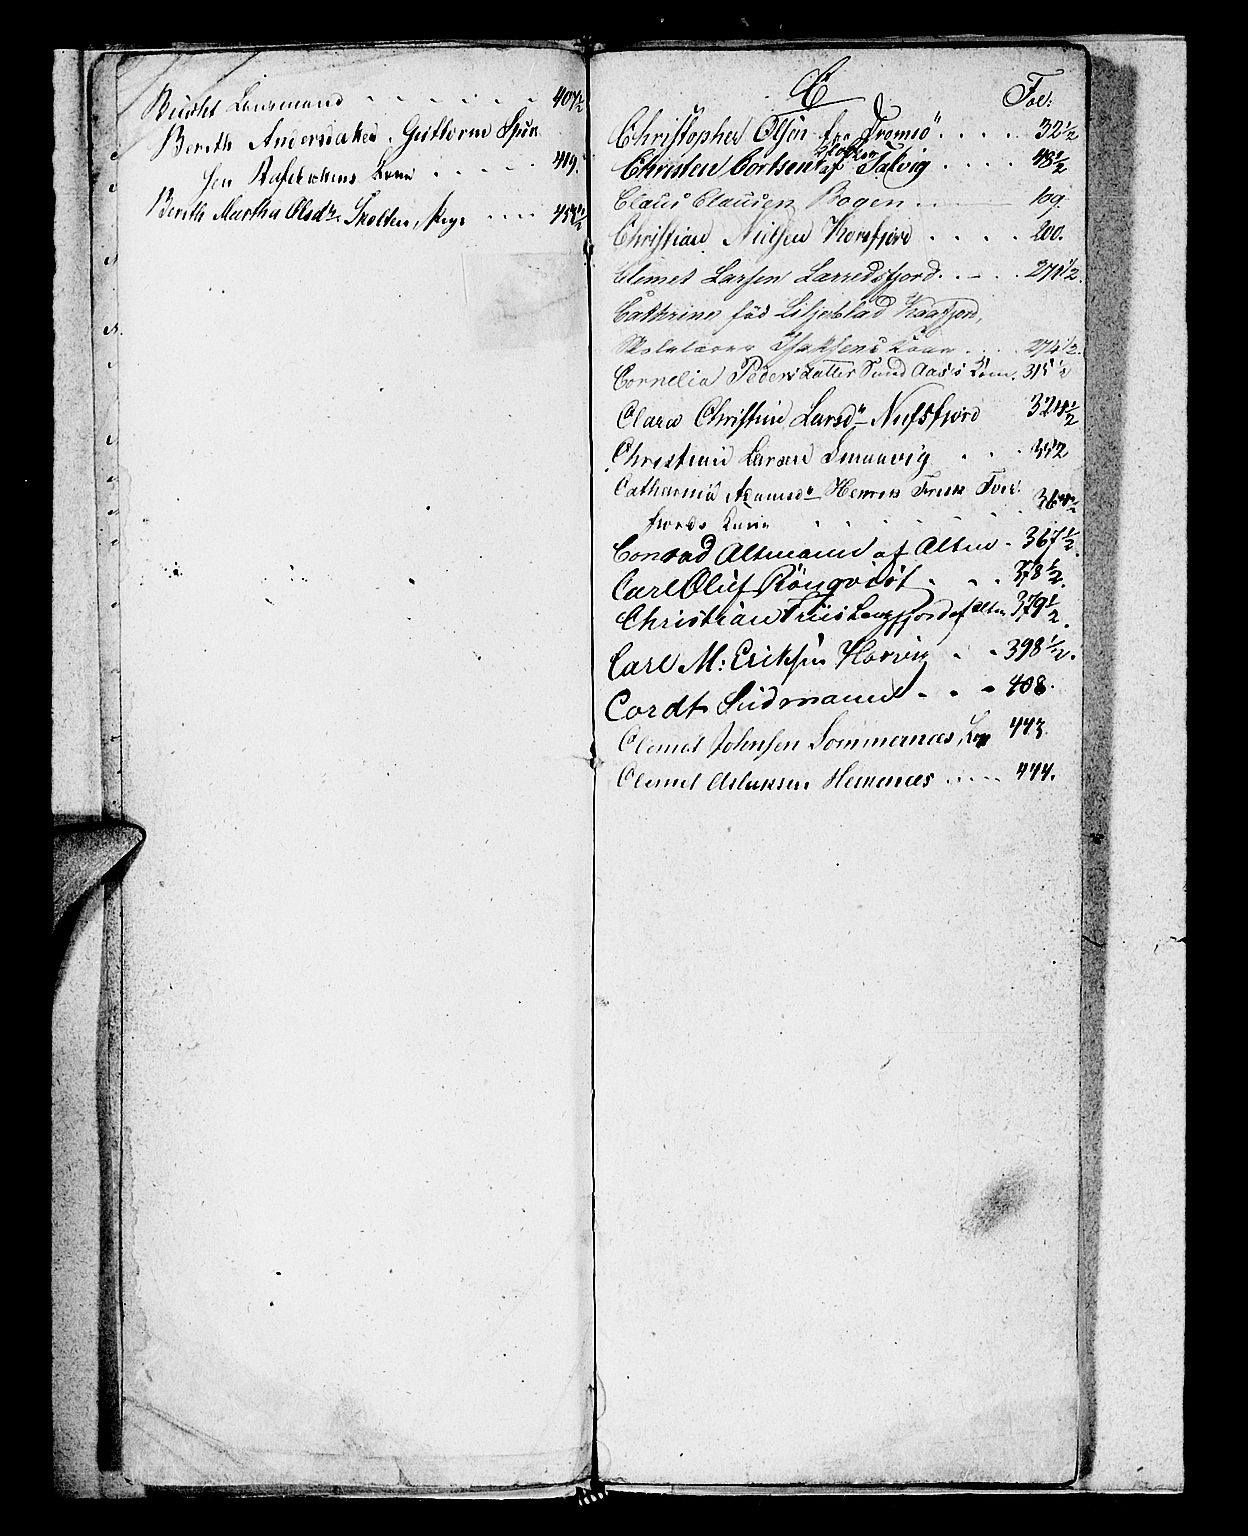 Bucht Lensmand . . . . . . 407½
Bereth Andersdatter, Guttorm Spein
sen Kone . . . . 419.
Bereth Martha Olsdr. Skolten, Pige . . . . 458½
C
Fol:
Christopher Olsen fra Tromsö . . . . 32½
Klokker
Christen Cortsen af Talvig . . . . 48½
Claus Clausen Bogen . . . 109
Christian Nielsen Korsfjord . . . . 200.
Clemet Larsen Lerredsfjord . . . 271½.
Cathrine föd Liljeblad Kaafjord,
Skolelærer Isaksens Kone . . . 274½.
Cornelia Pedersdatter Sund Kone. 315½
Clara Christine Larsdr. Nufsfjord 324½
Christian Larsen Smaavig . . . 352
Catharina Adamsdr Henrik Friis Tver
fjords Kone . . . . 364½
Conrad Altmann af Alten . 367½.
Carl Oluf Rönqvist . . . 378½.
Christian Friis Langfjord af Alten 379½.
Carl M: Eriksen Horvig . . 398½.
Cordt Südmann . . . 408.
Clemet Johnsen Sommernæs, 443.
Clemet Aslaksen Hemenæs . . . . . 444.